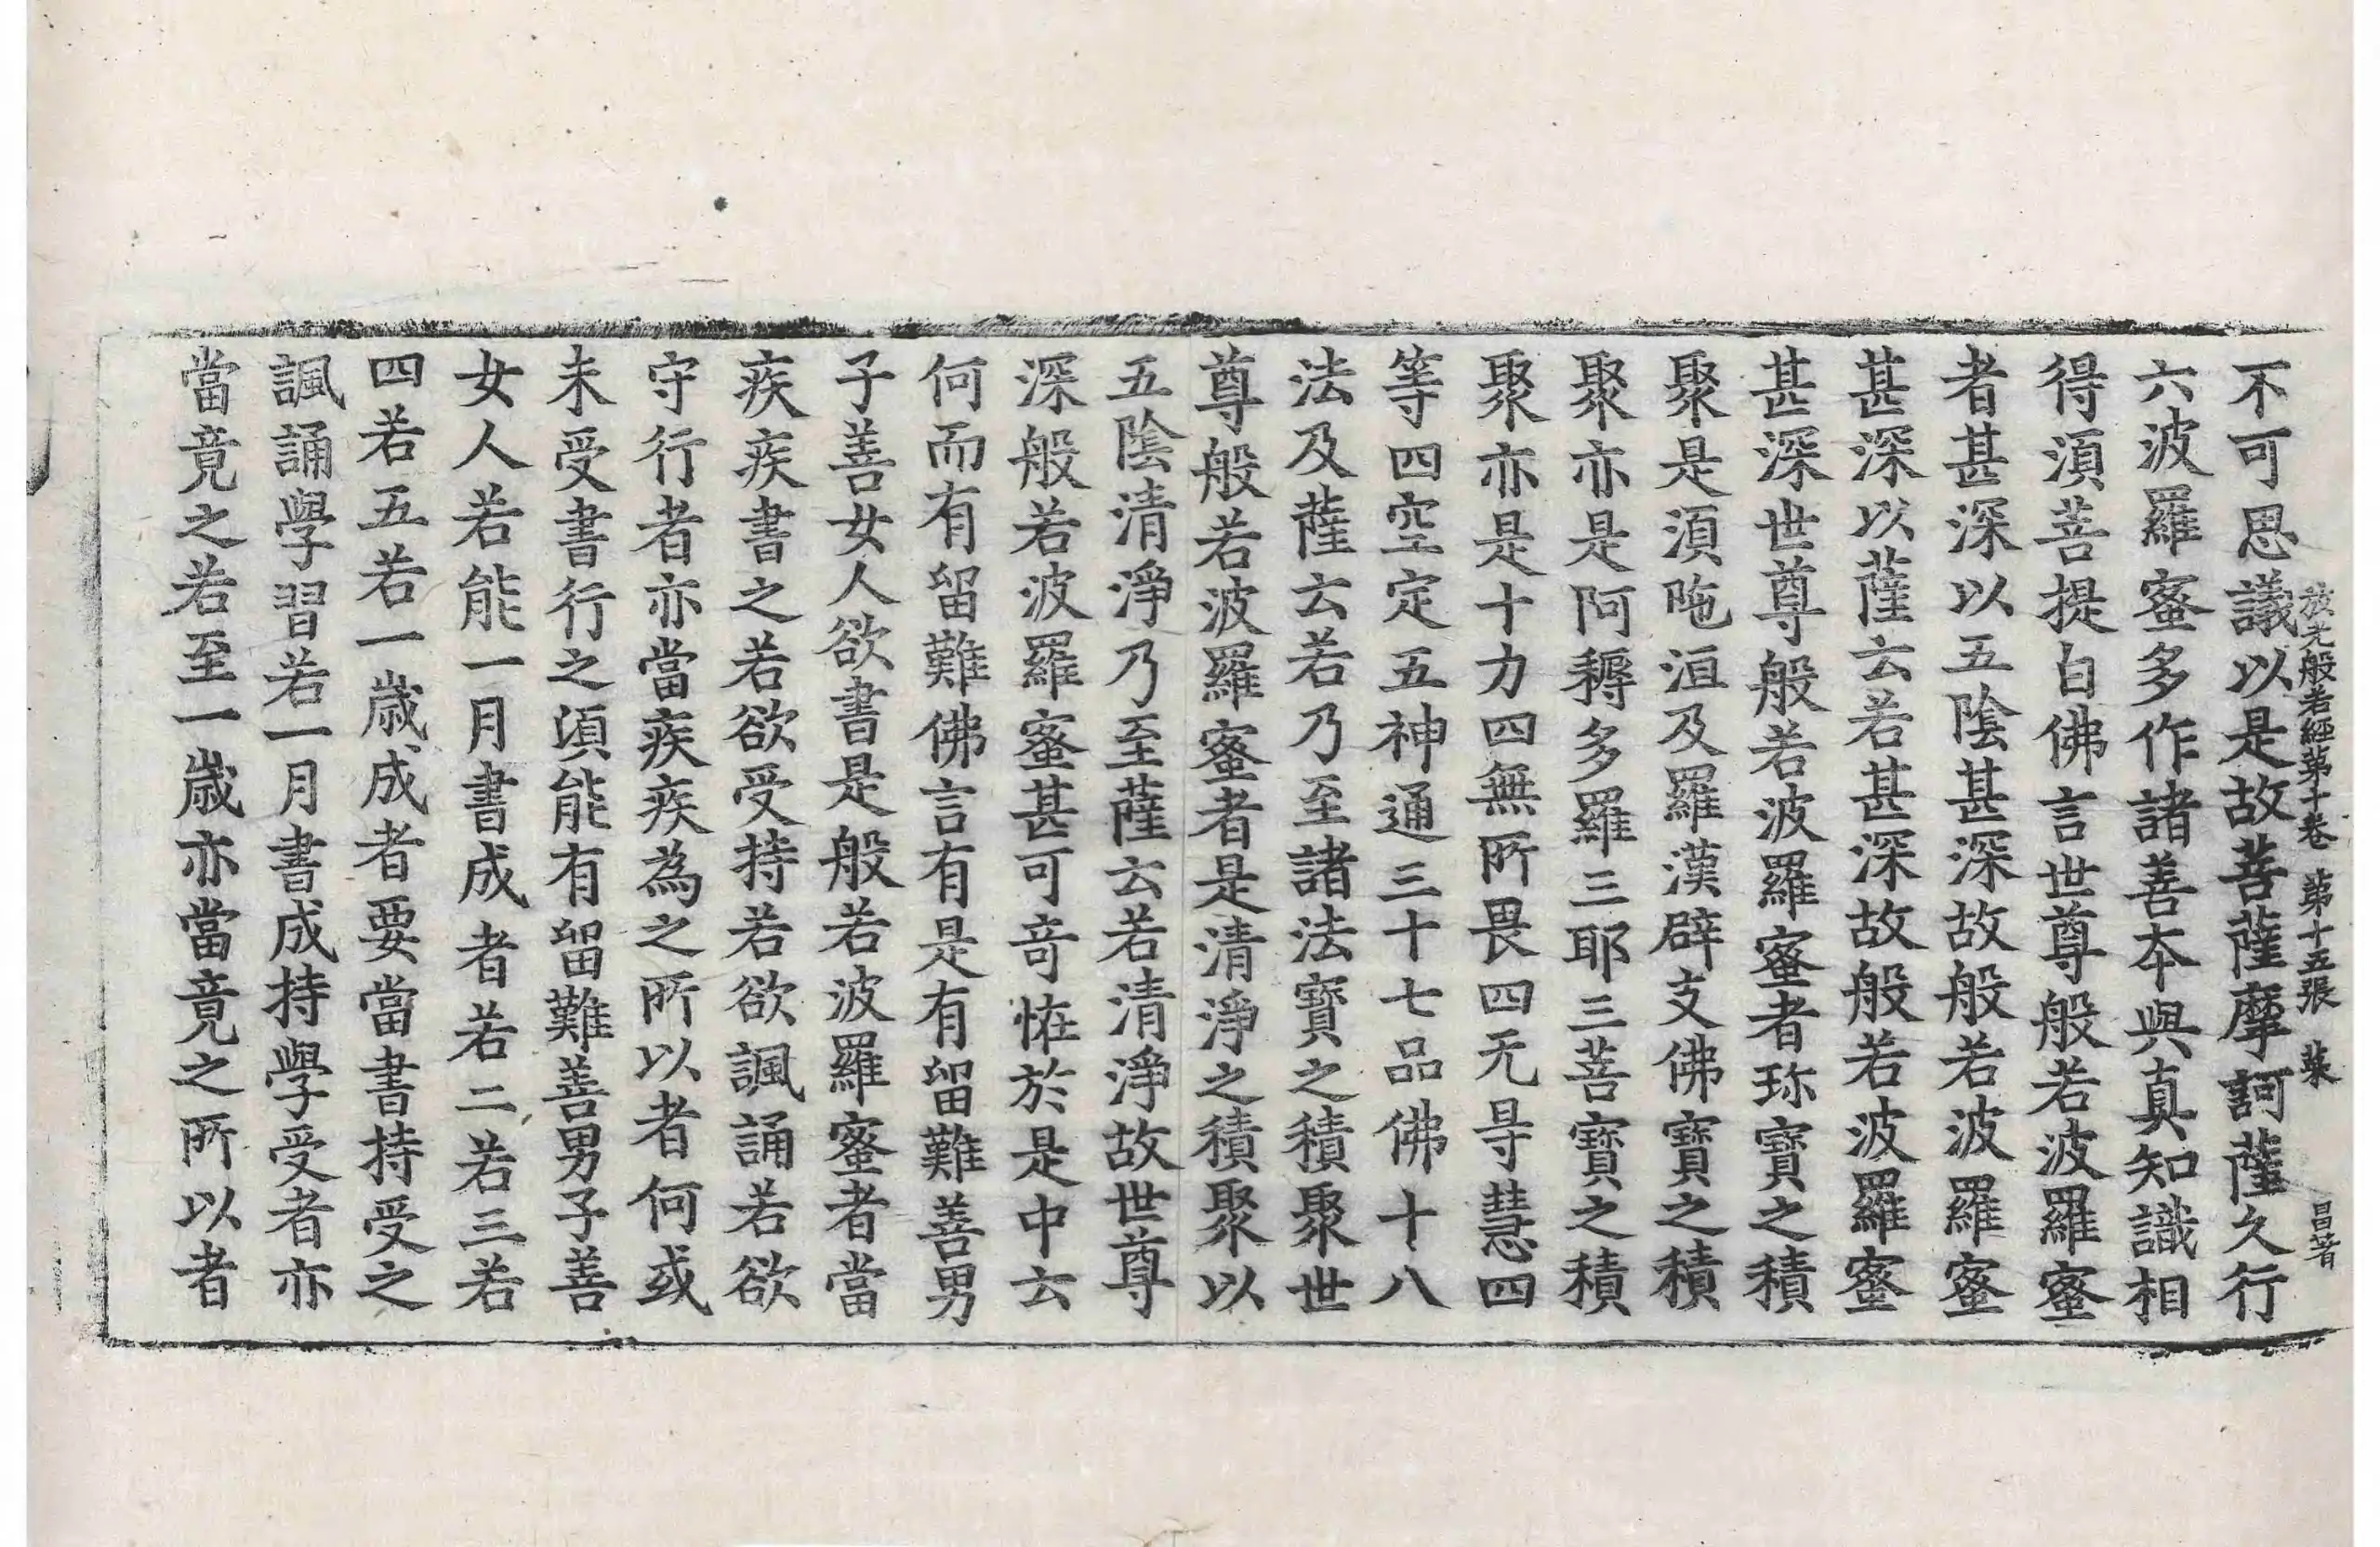 放光般若經第十卷 第十五張 菜 昌著
不可思議以是故菩薩摩訶薩久行
六波羅蜜多作諸善夲與真知識相
得湏菩提白佛言世尊般若波羅蜜
者甚深以五陰甚深故般若波羅蜜
甚深以薩云若甚深故般若波羅蜜
甚深世尊般若波羅蜜者珎寶之積
聚是湏陁洹及羅漢辟支佛寶之積
聚亦是阿耨多羅三耶三菩寶之積
聚亦是十力四無所畏四无㝵慧四
等四空定五神通三十七品佛十八
法及薩云若乃至諸法寶之積聚世
尊般若波羅蜜者是清淨之積聚以
五陰清淨乃至薩云若清淨故世尊
深般若波羅蜜甚可竒恠於是中云
何而有留難佛言有是有留難善男
子善女人欲書是般若波羅蜜者當
疾疾書之若欲受持若欲諷誦若欲
守行者亦當疾疾為之所以者何或
未受書行之湏能有留難善男子善
女人若能一月書成者若二若三若
四若五若一歲成者要當書持受之
諷誦學習若一月書成持學受者亦
當竟之若至一歲亦當竟之所以者